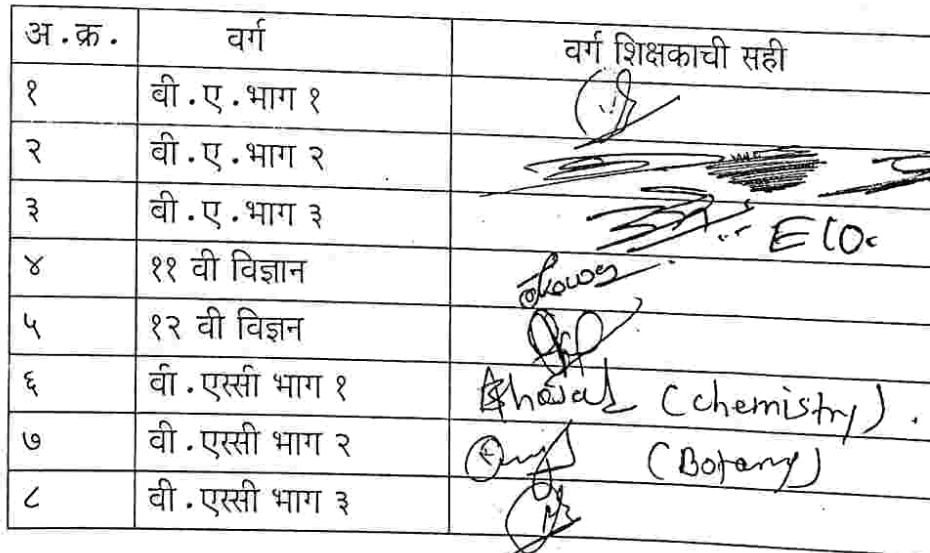 अ.क्र. वर्ग वर्ग शिक्षकाची सही
१ वी.ए.भाग १
२ वी.ए.भाग २
३ वी.ए.भाग ३ Eco.
४ ११ वी विज्ञान
५ १२ वी विज्ञन
६ वी.एस्सी भाग १ (chemistry).
७ वी.एस्सी भाग २ (Botany)
८ वी.एस्सी भाग ३